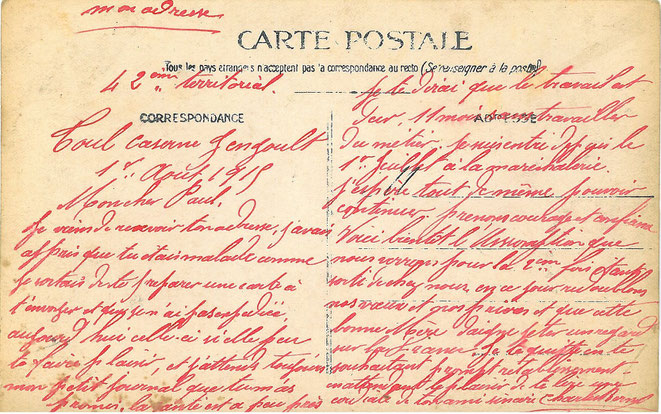 mon adresse
CARTE POSTALE
Tous les pays étrangers n'acceptent pas la correspondance au recto (Se renseigner à la poste)
42 ème territorial.
CORRESPONDANCE
Toul caserne Gengoult
1er Août 1915
Mon cher Paul.
Je viens de recevoir ton adresse, j'avais
appris que tu étais malade comme
je sortais de te préparer une carte à
t'envoyer et que je n'ai pas expédiée,
aujourd'hui celle-ci si elle peu
te faire plaisir, et j'attends toujours
mon petit journal que tu m'as
promis, la santé est a peu près
ADRESSE
Je te dirai que le travail est
dur, 11 mois sans travailler
du métier. Je suis entré depuis le
1er Juillet à la maréchalerie.
j'espère tout de même pouvoir
continuer, prenons courage et confiance
Voici bientôt l'Assomption que
nous verrons pour la 2ème fois étant
sorti de chez nous, en ce jour redoublons
nos vœux et nos prières et que cette
bonne Mère daigne jeter un regard
sur la France. Je te quitte en te
souhaitant prompt rétablissement
en attendant le plaisir de te lire une
cordiale de ton ami sincère